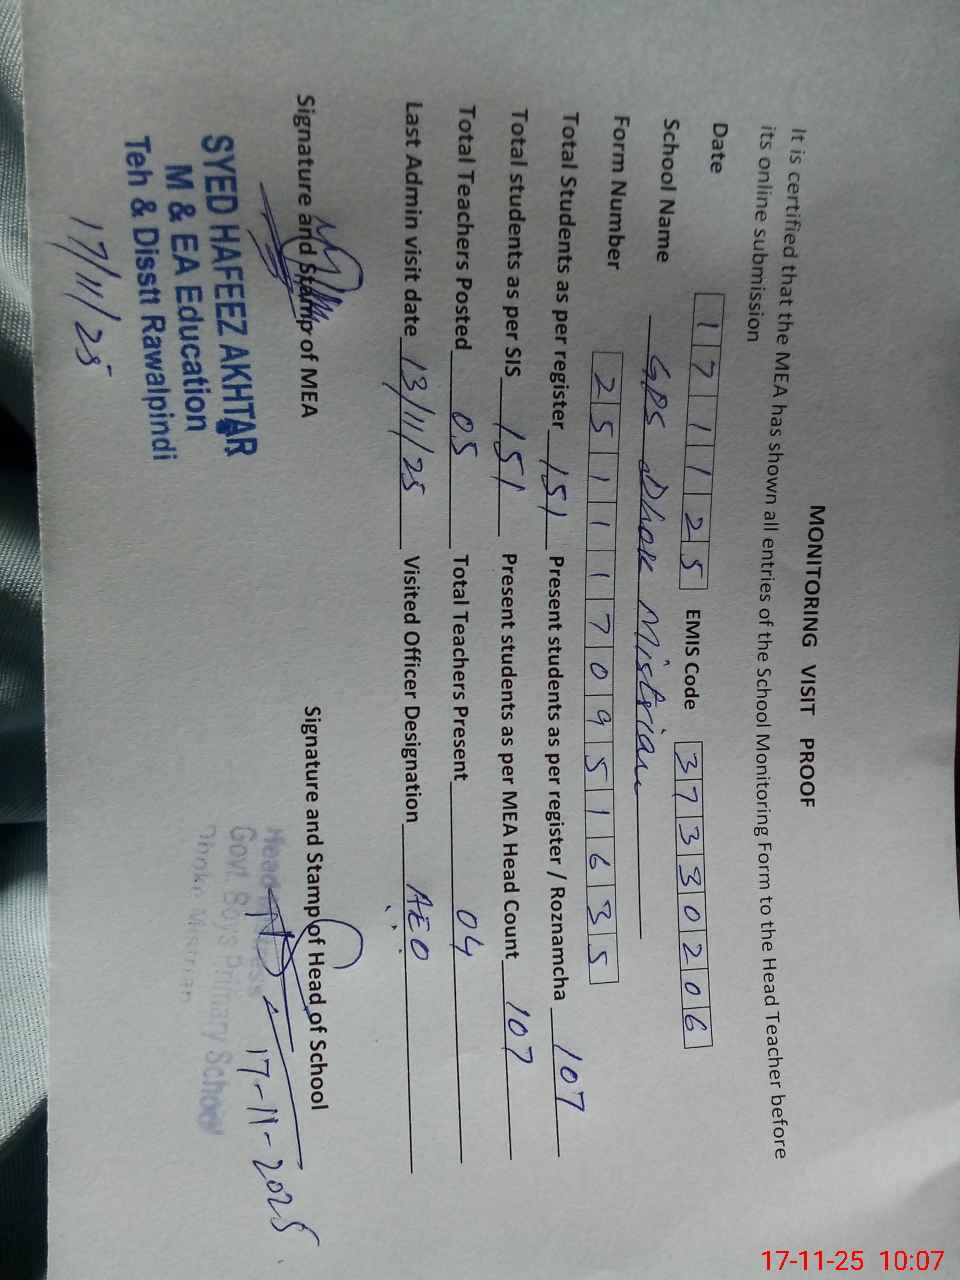 MONITORING VISIT PROOF
It is certified that the MEA has shown all entries of the School Monitoring Form to the Head Teacher before
its online submission
Date 171125 EMIS Code 37330206
School Name GPS Dhok Mistrian
Form Number 2511170951635
Total Students as per register 151 Present students as per register / Roznamcha 107
Total students as per SIS 151 Present students as per MEA Head Count 107
Total Teachers Posted 05 Total Teachers Present 04
Last Admin visit date 13/11/25 Visited Officer Designation AEO
Signature and Stamp of MEA Signature and Stamp of Head of School
SYED HAFEEZ AKHTAR
M & EA Education
Teh & Disstt Rawalpindi
17/11/25
Govt. Boys Primary School
Dhoke Mistrian
17-11-2025
17-11-25 10:07